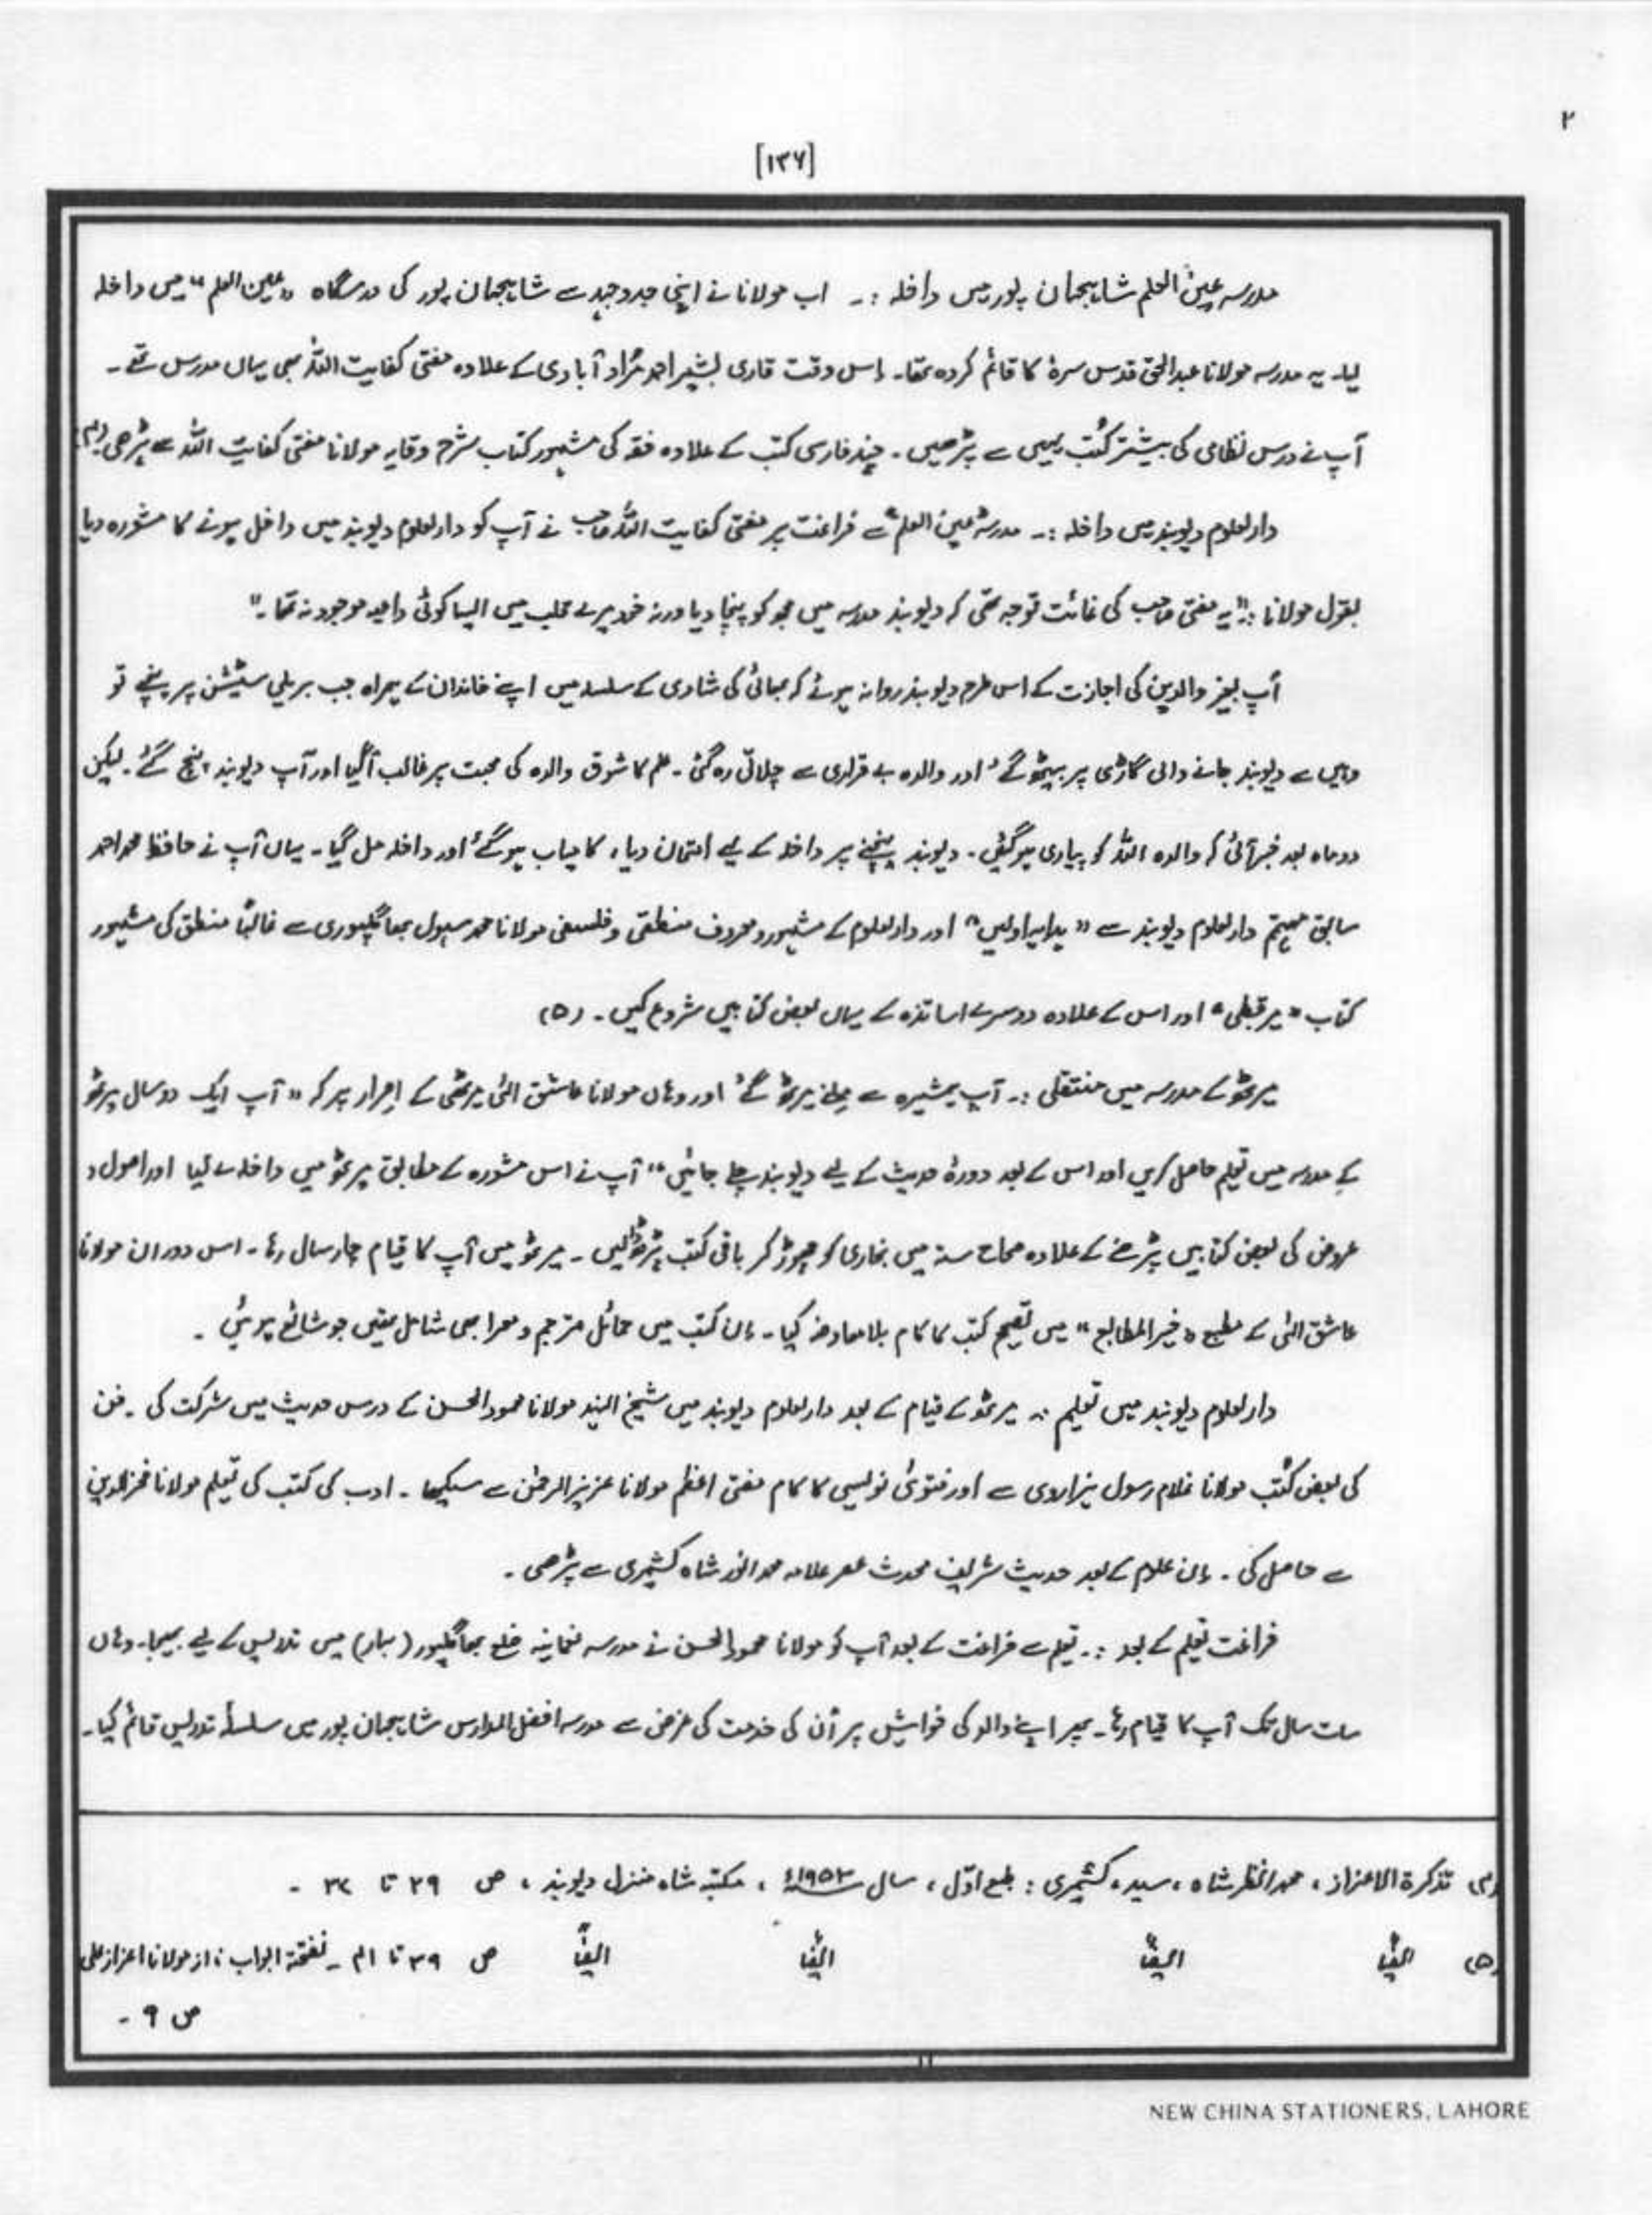 ۲
[۱۳۷]
مدرسہ عین العلم شاہجہان پور میں داخلہ :۔ اب مولانا نے اپنی جدوجہد سے شاہجہان پور کی درسگاہ "عین العلم" میں داخلہ
لیا۔ یہ مدرسہ مولانا عبدالحق قدس سرہٗ کا قائم کردہ تھا۔ اِس وقت قاری بشیر احمد مُراد آبادی کے علاوہ مفتی کفایت اللہؒ بھی یہاں مدرس تھے۔
آپ نے درس نظامی کی بیشتر کُتب یہیں سے پڑھیں۔ چند فارسی کتب کے علاوہ فقہ کی مشہور کتاب شرح وقایہ مولانا مفتی کفایت اللہؒ سے پڑھی۔ (۴)
دارالعلوم دیوبند میں داخلہ :۔ مدرسہ "عین العلم" سے فراغت پر مفتی کفایت اللہؒ صاحب نے آپ کو دارالعلوم دیوبند میں داخل ہونے کا مشورہ دیا
بقول مولانا :۔ "یہ مفتی صاحب کی غائت توجہ تھی کہ دیوبند مدرسہ میں مجھ کو پہنچا دیا ورنہ خود میرے قلب میں ایسا کوئی داعیہ موجود نہ تھا۔"
آپ بغیر والدین کی اجازت کے اس طرح دیوبند روانہ ہوئے کہ بھائی کی شادی کے سلسلہ میں اپنے خاندان کے ہمراہ جب بریلی سٹیشن پر پہنچے تو
وہیں سے دیوبند جانے والی گاڑی پر بیٹھ گئے اور والدہ بے قراری سے چلاتی رہ گئی۔ علم کا شوق والدہ کی محبت پر غالب آ گیا اور آپ دیوبند پہنچ گئے۔ لیکن
دو ماہ بعد خبر آئی کہ والدہ اللہ کو پیاری ہو گئی۔ دیوبند پہنچنے پر داخلہ کے لیے امتحان دیا، کامیاب ہو گئے اور داخلہ مل گیا۔ یہاں آپ نے حافظ محمد احمد
سابق مہتمم دارالعلوم دیوبند سے "ہدایہ اولین" اور دارالعلوم کے مشہور و معروف منطقی و فلسفی مولانا محمد سہول بھاگلپوری سے غالباً منطق کی مشہور
کتاب "میر قطبی" اور اس کے علاوہ دوسرے اساتذہ کے یہاں بعض کتابیں شروع کیں۔ (۵)
میرٹھ کے مدرسہ میں منتقلی :۔ آپ ہمشیرہ سے ملنے میرٹھ گئے اور وہاں مولانا عاشق الٰہی میرٹھی کے اصرار پر کہ "آپ ایک دو سال میرٹھ
کے مدرسہ میں تعلیم حاصل کریں اور اس کے بعد دورۂ حدیث کے لیے دیوبند چلے جائیں" آپ نے اس مشورہ کے مطابق میرٹھ میں داخلہ لے لیا اور اصول و
عروض کی بعض کتابیں پڑھنے کے علاوہ صحاح ستہ میں بخاری کو چھوڑ کر باقی کتب پڑھ لیں۔ میرٹھ میں آپ کا قیام چار سال رہا۔ اس دوران مولانا
عاشق الٰہی کے مطبع "خیر المطابع" میں تصحیح کتب کا کام بلا معاوضہ کیا۔ اِن کتب میں حمائل مترجم و معرا بھی شامل تھیں جو شائع ہوئی۔
دارالعلوم دیوبند میں تعلیم :۔ میرٹھ کے قیام کے بعد دارالعلوم دیوبند میں شیخ الہند مولانا محمود الحسن کے درس حدیث میں شرکت کی۔ فن
کی بعض کُتب مولانا غلام رسول ہزاروی سے اور فتویٰ نویسی کا کام مفتی اعظم مولانا عزیز الرحمٰن سے سیکھا۔ ادب کی کتب کی تعلیم مولانا فخرالدین
سے حاصل کی۔ اِن علوم کے بعد حدیث شریف محدث عصر علامہ محمد انور شاہ کشمیری سے پڑھی۔
فراغت تعلیم کے بعد :۔ تعلیم سے فراغت کے بعد آپ کو مولانا محمود الحسن نے مدرسہ نعمانیہ ضلع بھاگلپور (بہار) میں تدریس کے لیے بھیجا۔ وہاں
سات سال تک آپ کا قیام رہا۔ پھر اپنے والد کی خواہش پر اُن کی خدمت کی غرض سے مدرسہ افضل المدارس شاہجہان پور میں سلسلۂ تدریس قائم کیا۔
(۴) تذکرۃ الاعزاز، محمد انظر شاہ، سید، کشمیری : طبع اوّل، سال ۱۹۵۲ء، مکتبہ شاہ منزل دیوبند، ص ۲۹ تا ۳۲ -
(۵) ایضاً ایضاً ایضاً ایضاً ص ۳۹ تا ۴۱ - نفحۃ ابواب : از مولانا اعزاز علی
ص ۹ -
NEW CHINA STATIONERS, LAHORE